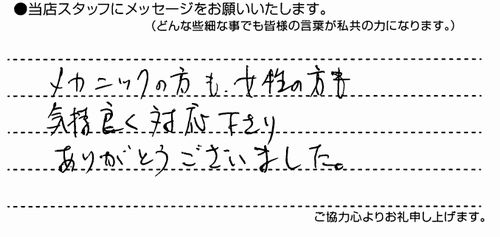 ●当店スタッフにメッセージをお願いいたします。
（どんな些細な事でも皆様の言葉が私共の力になります。）
メカニックの方も、女性の方も
気持良く対応下さり
ありがとうございました。
ご協力心よりお礼申し上げます。